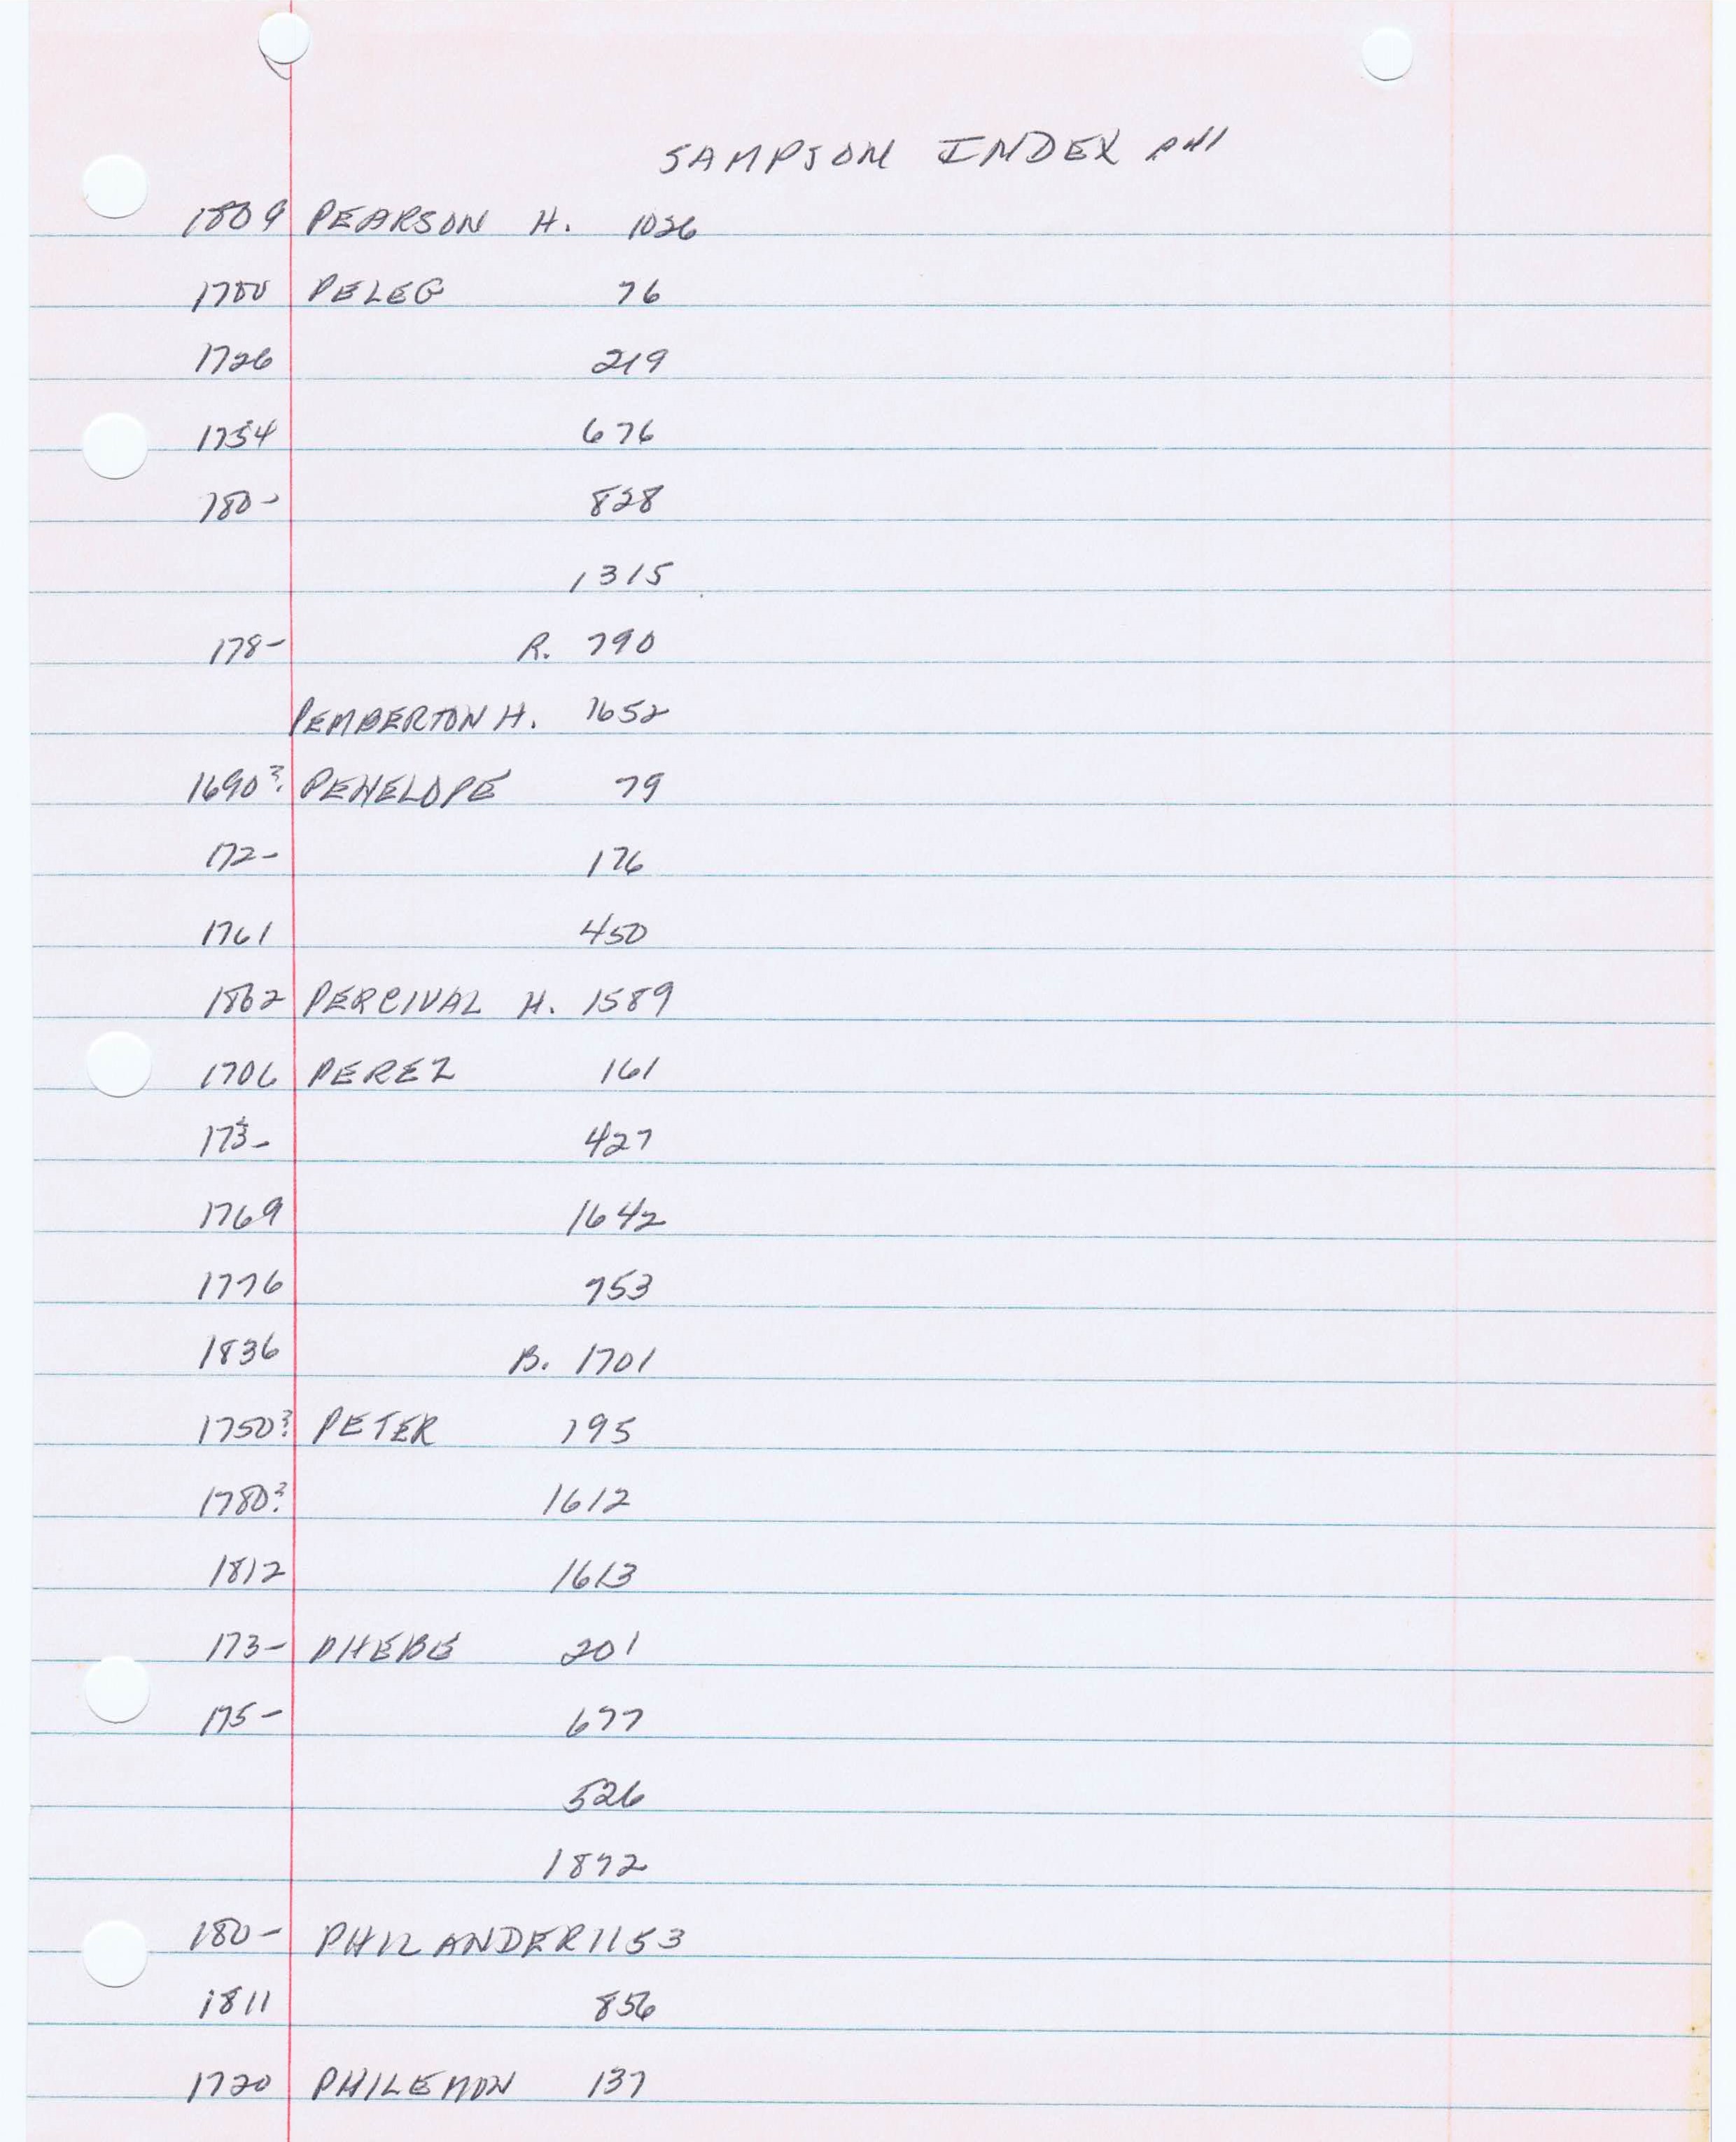 SAMPSON INDEX P41
1809 PEARSON H. 1026
1700 PELEG 76
1726 219
1754 676
180- 828
1315
178- R. 790
PEMBERTON H. 1652
1690? PENELOPE 79
172- 176
1761 450
1862 PERCIVAL H. 1589
1706 PEREZ 161
173- 427
1769 1642
1776 753
1836 B. 1701
1750? PETER 195
1780? 1612
1812 1613
173- PHEBE 201
175- 677
526
1872
180- PHILANDER 1153
1811 856
1720 PHILEMON 137